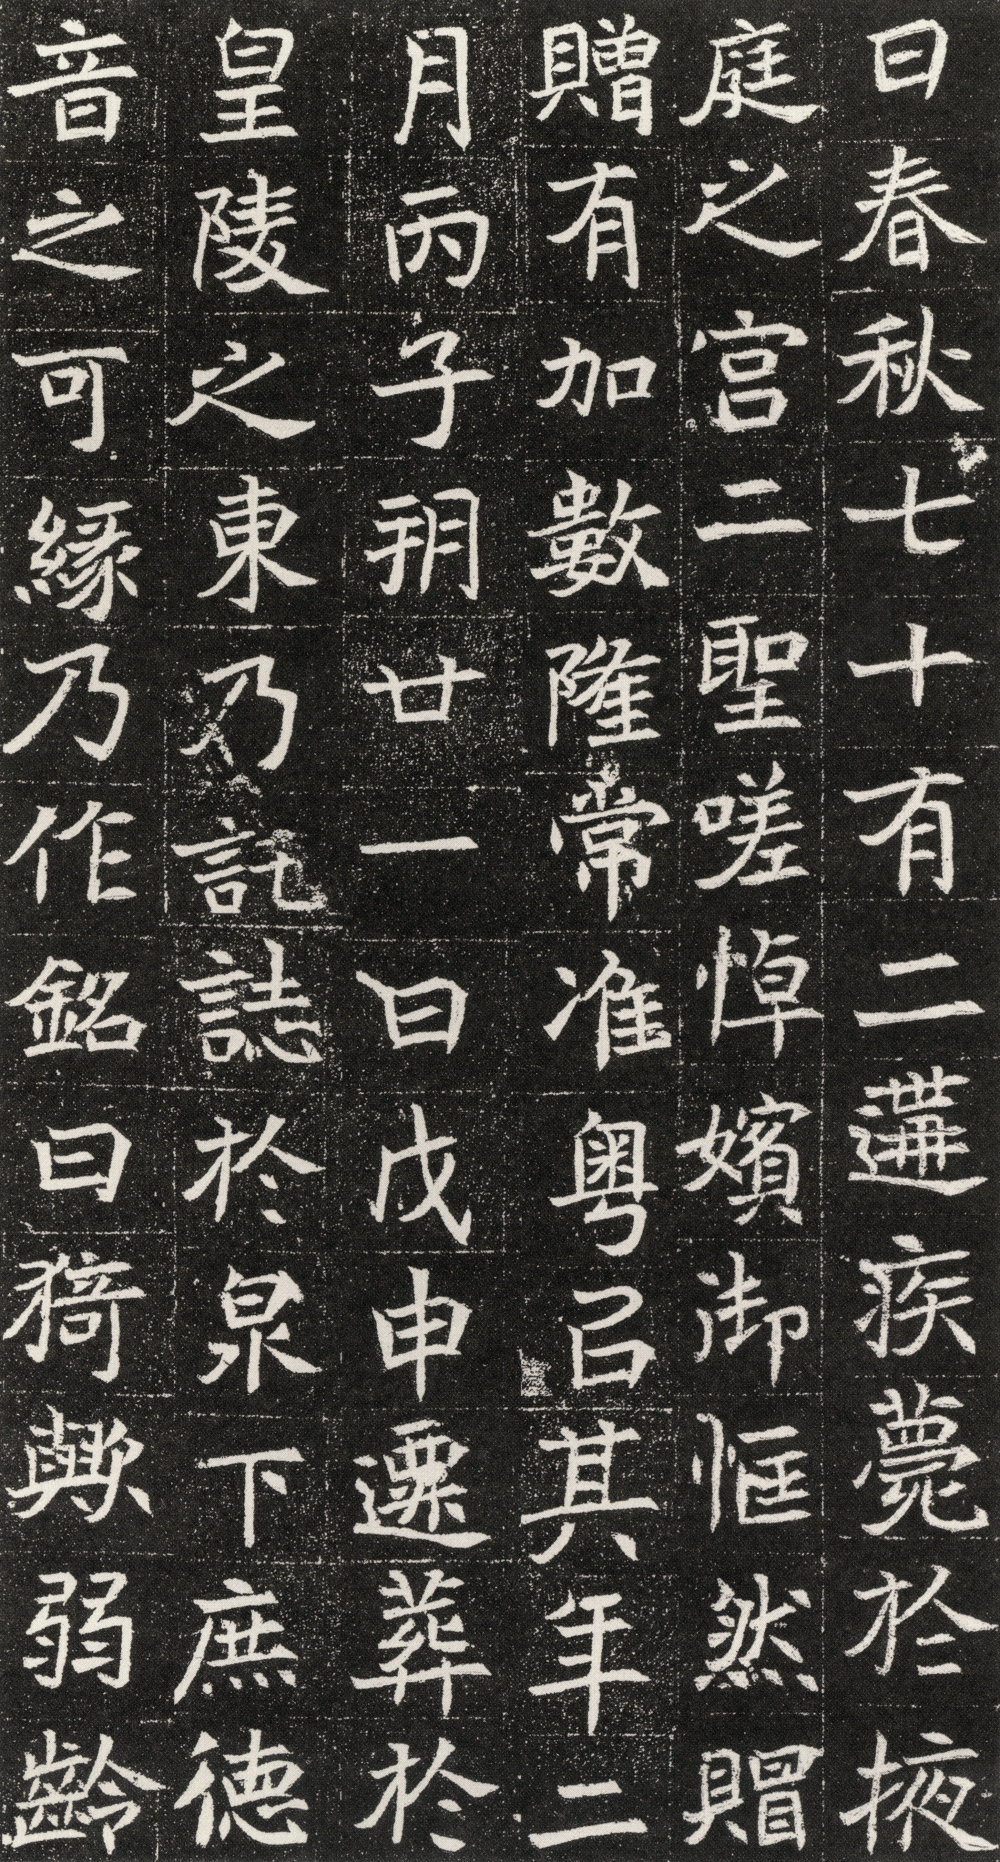 日春秋七十有二遘疾薨於掖
庭之宫二聖嗟悼嬪御恇然賵
贈有加數隆常准粤以其年二
月丙子朔廿一日戊申遷葬於
皇陵之東乃託誌於泉下庶德
音之可緣乃作銘曰猗歟弱齡